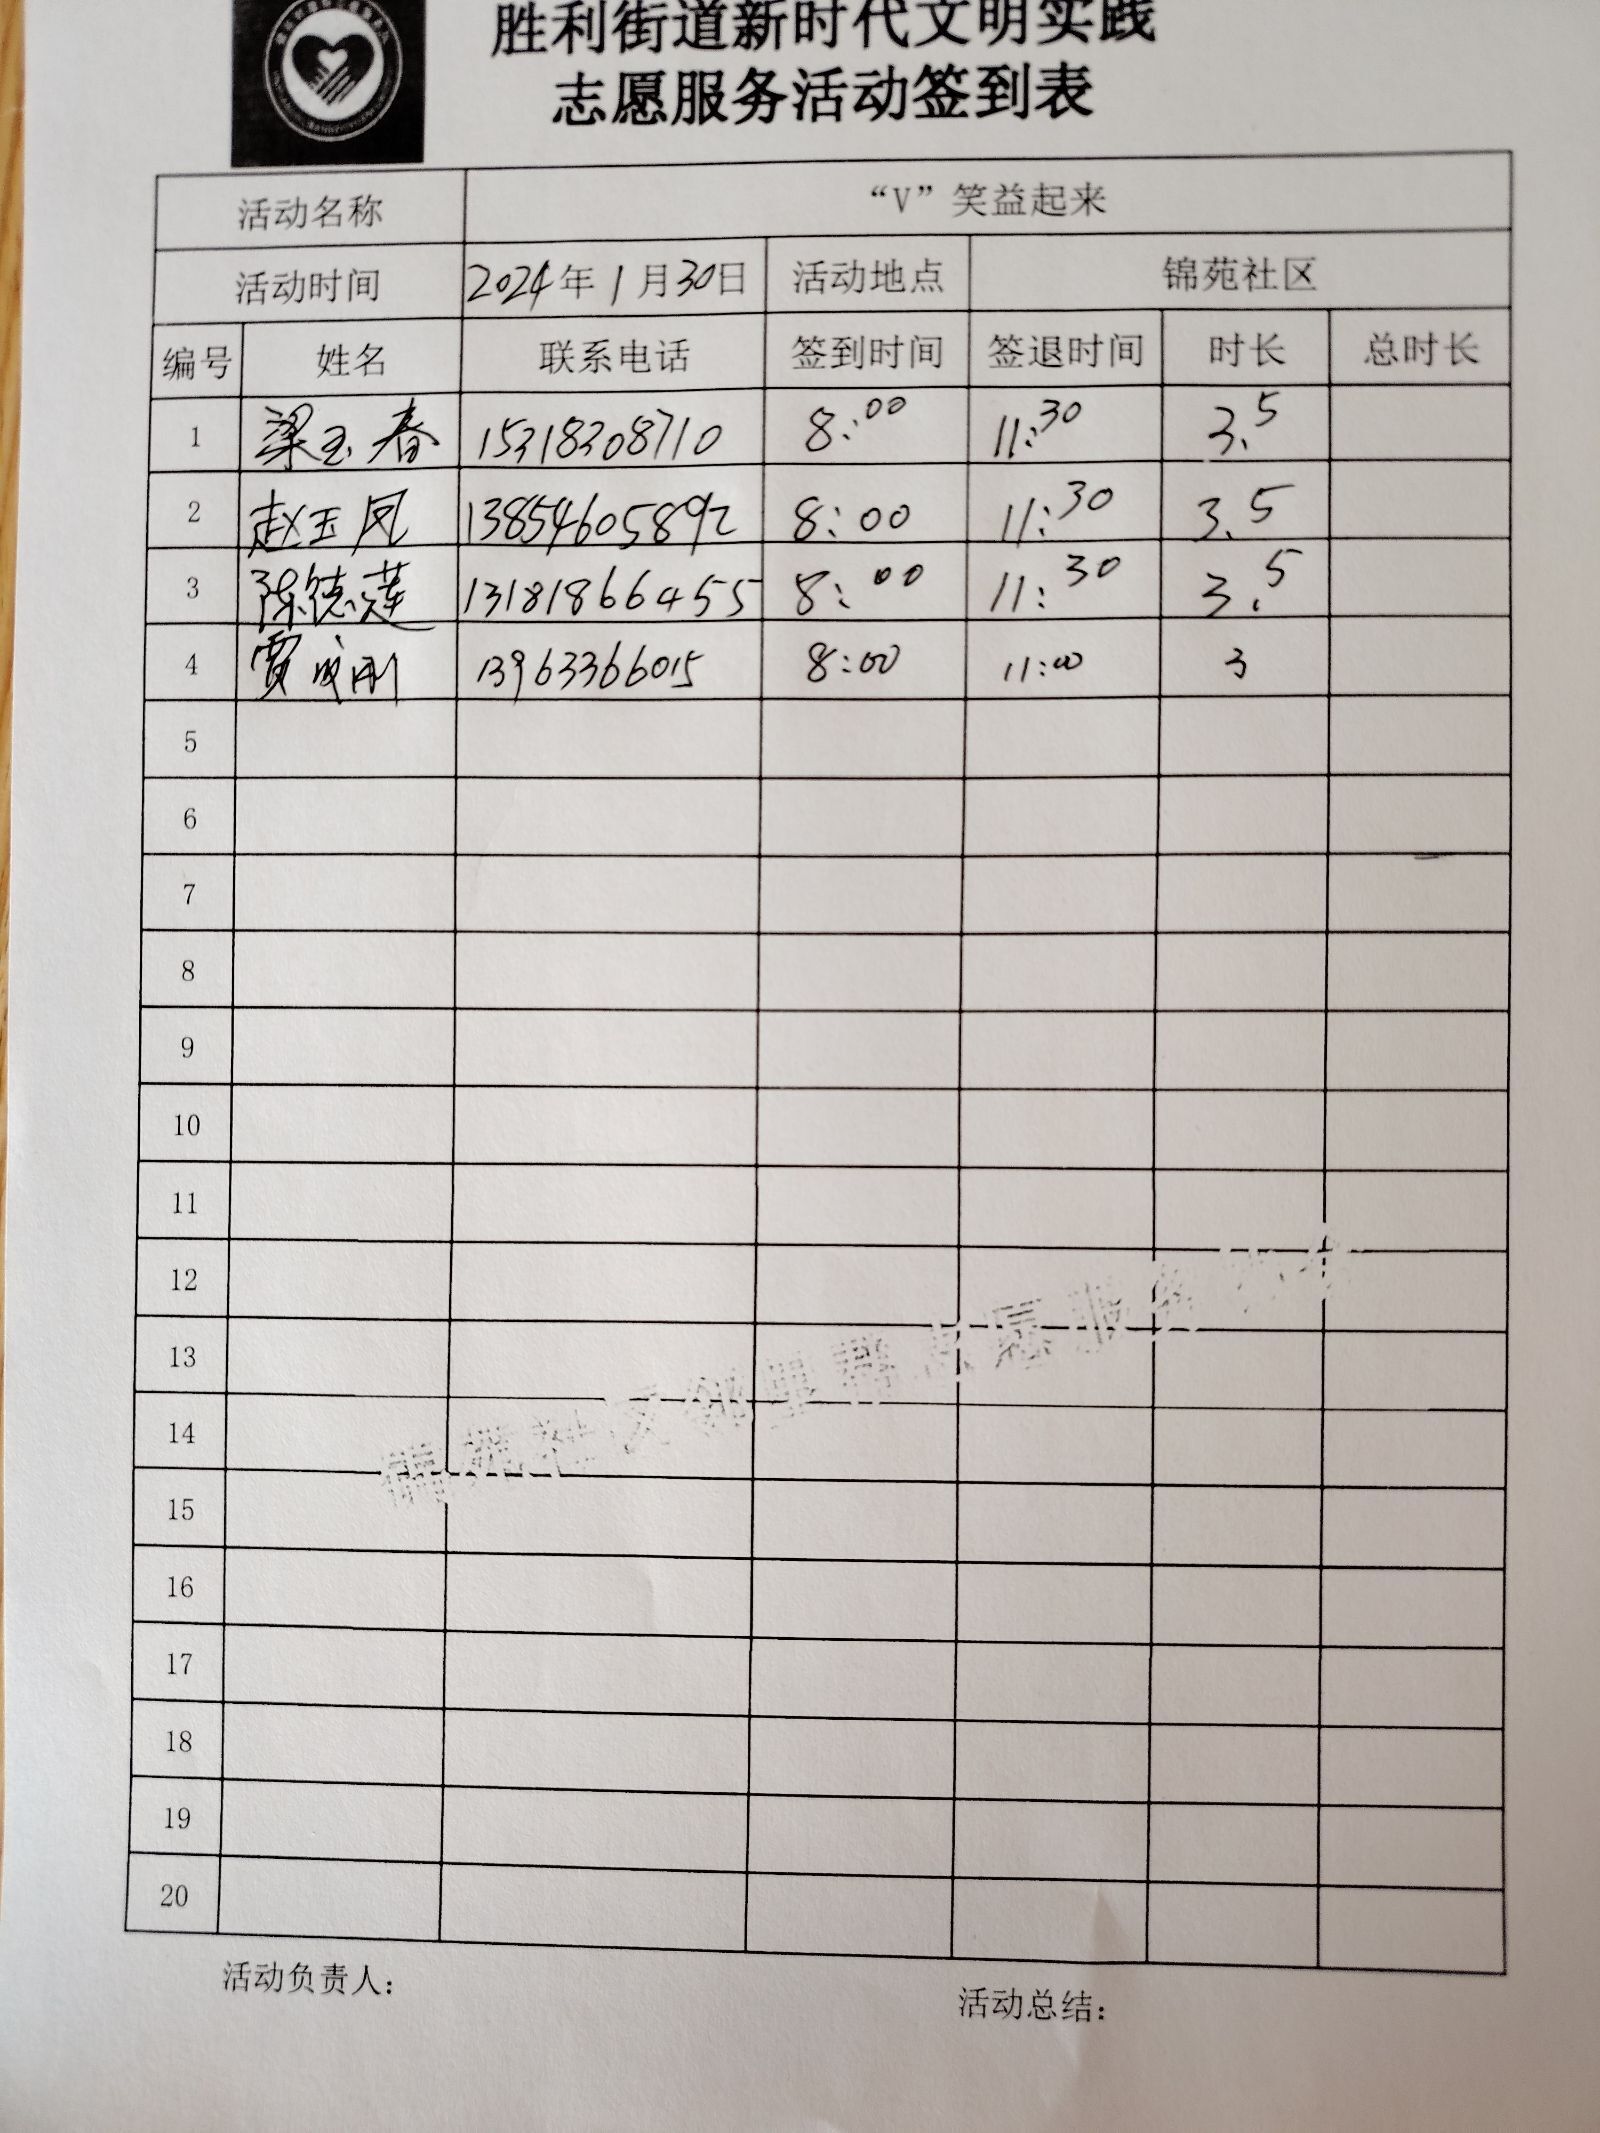 胜利街道新时代文明实践
志愿服务活动签到表
活动名称 “V”笑益起来
活动时间 2024年1月30日 活动地点 锦苑社区
编号 姓名 联系电话 签到时间 签退时间 时长 总时长
1 梁玉春 15318308710 8:00 11:30 3.5
2 赵玉凤 13854605892 8:00 11:30 3.5
3 陈德莲 13181866455 8:00 11:30 3.5
4 贾成刚 13963366015 8:00 11:00 3
5
6
7
8
9
10
11
12
13
14
15
16
17
18
19
20
活动负责人: 活动总结: